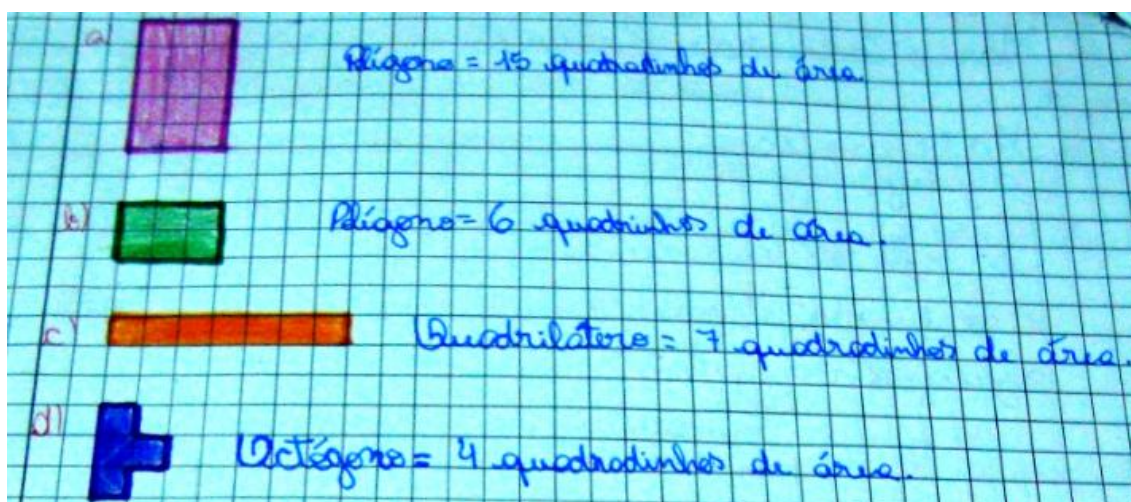 a) Polígono = 15 quadradinhos de área.
b) Polígono = 6 quadrinhos de área.
c) Quadrilátero = 7 quadradinhos de área.
d) Octógono = 4 quadradinhos de área.